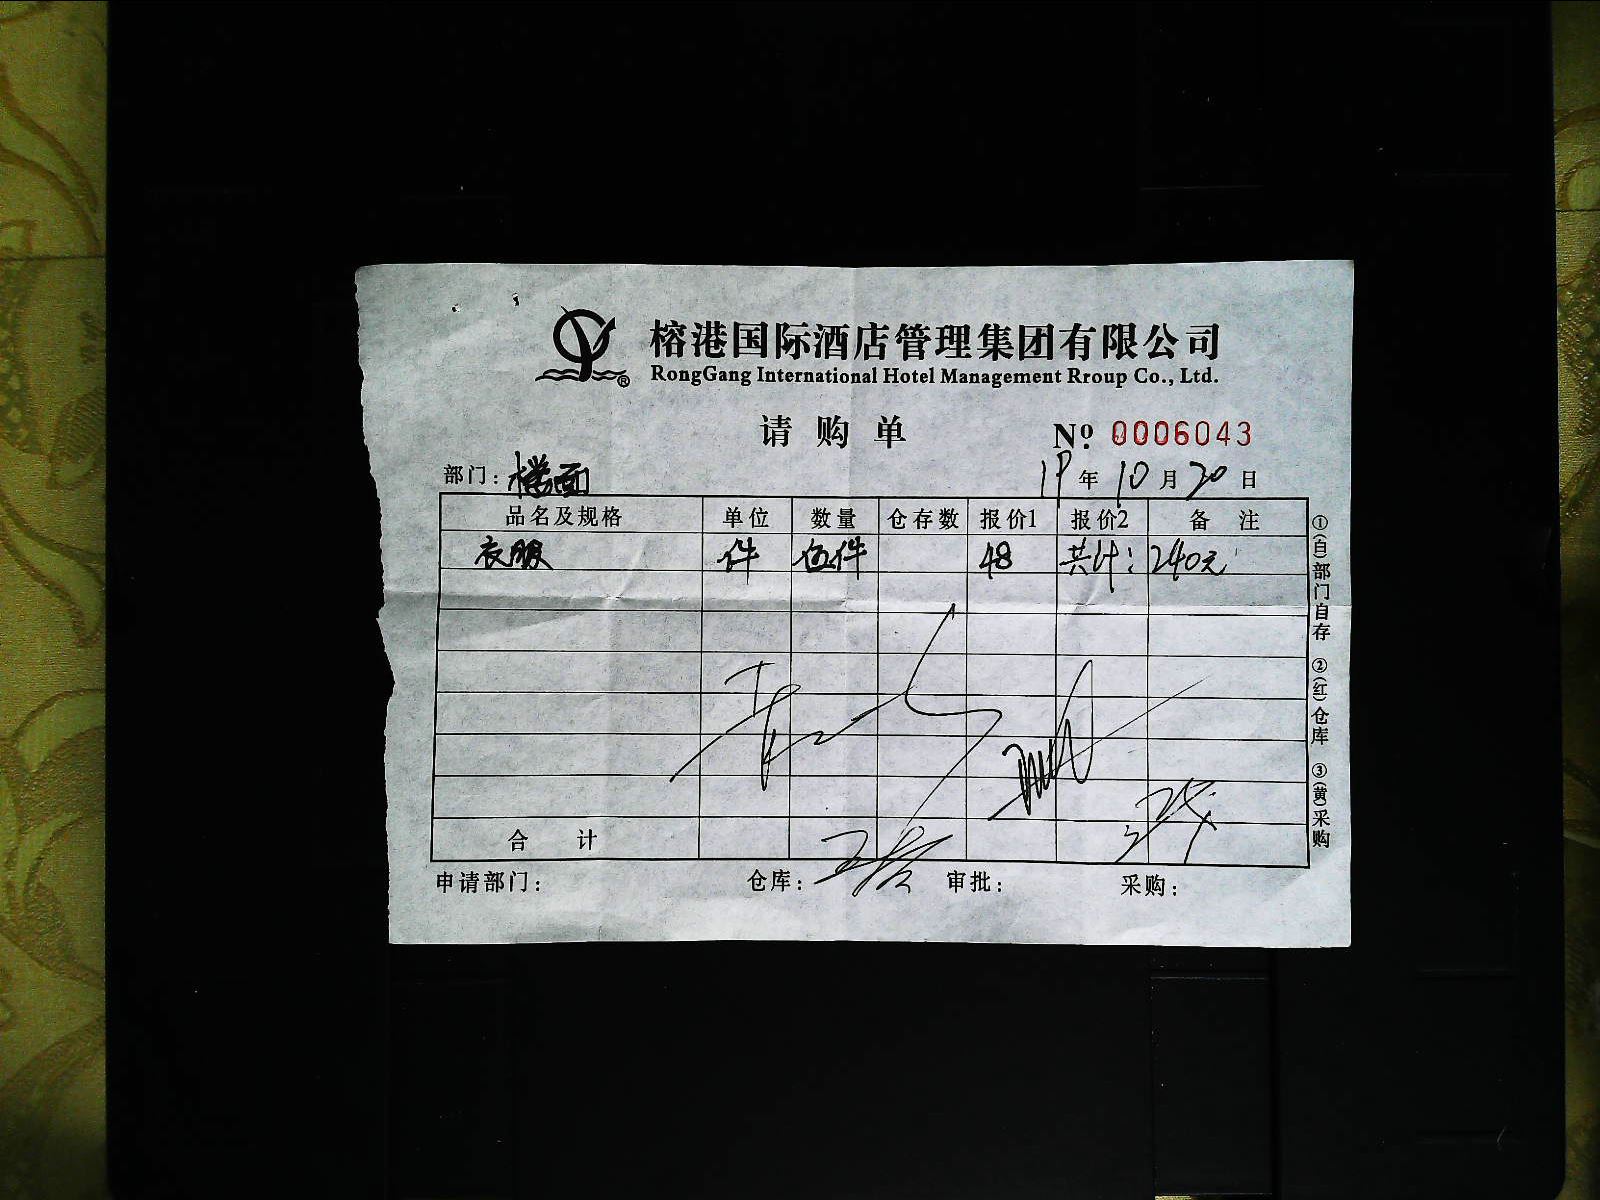 榕港国际酒店管理集团有限公司
RongGang International Hotel Management Rroup Co., Ltd.
请购单
Nº 0006043
部门: 楼面 19年10月20日
品名及规格 单位 数量 仓存数 报价1 报价2 备注
衣服 件 伍件 48 共计: 240元
合计
申请部门: 仓库: 审批: 采购:
①(白)部门自存 ②(红)仓库 ③(黄)采购